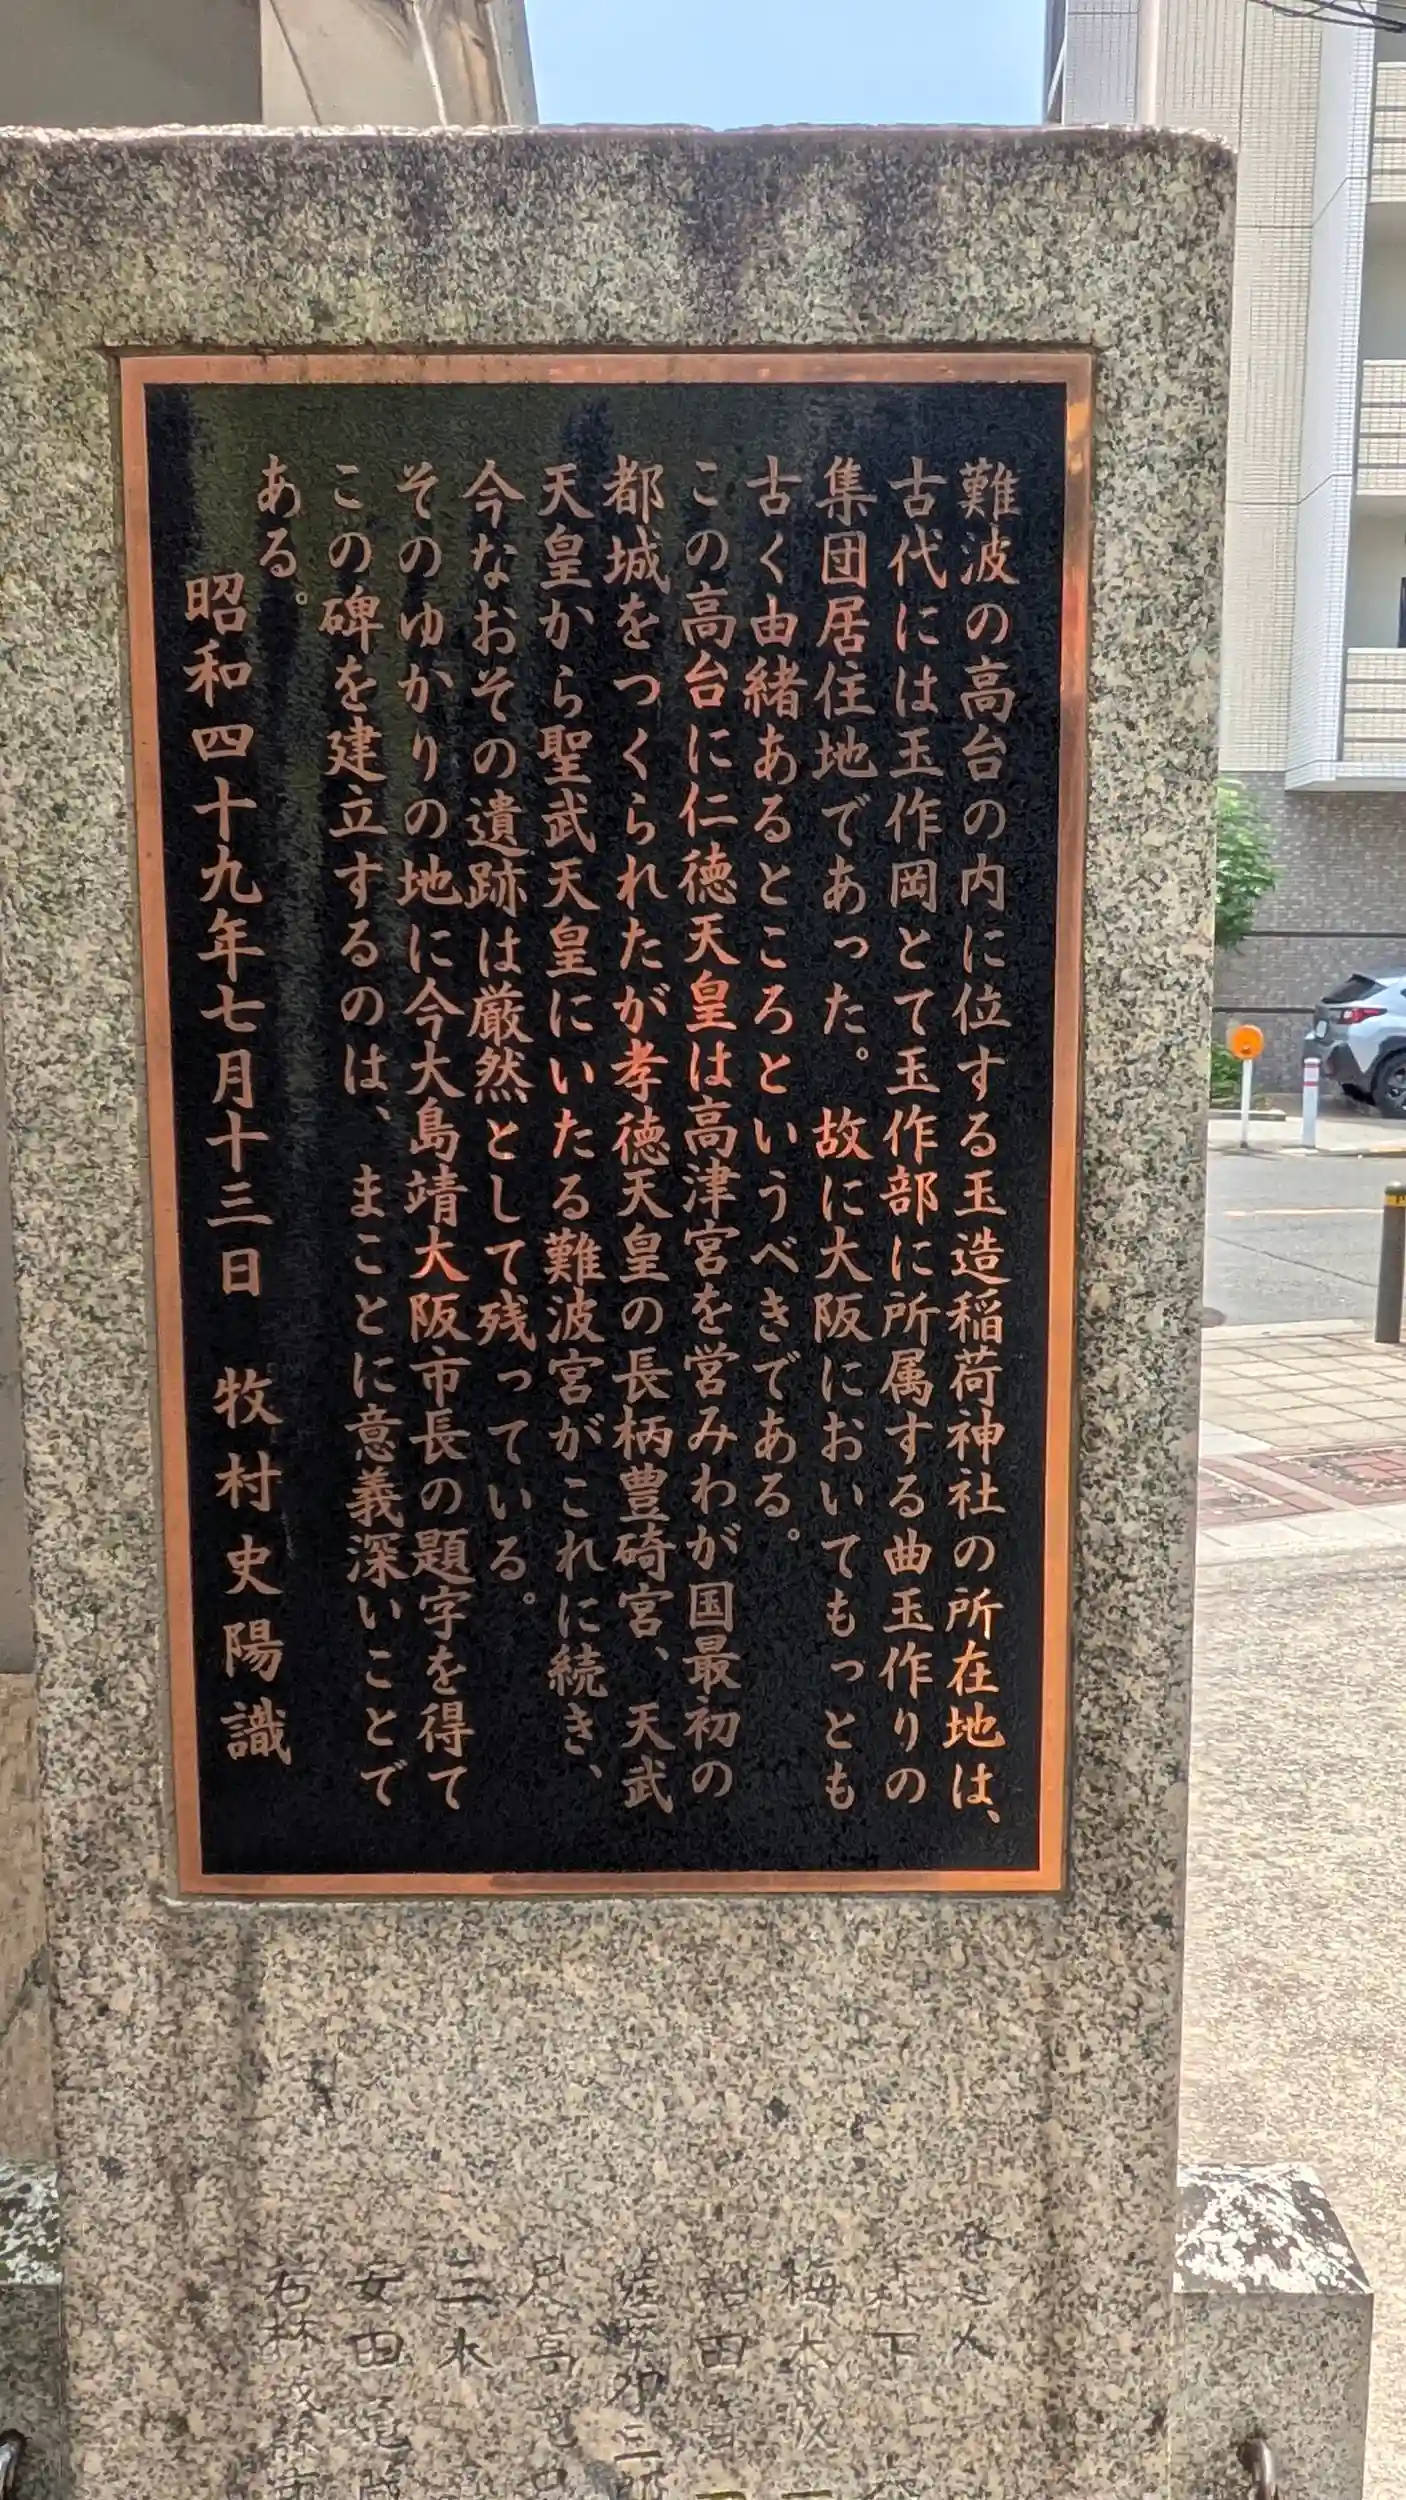 難波の高台の内に位する玉造稲荷神社の所在地は、
古代には玉作岡とて玉作部に所属する曲玉作りの
集団居住地であった。故に大阪においてもっとも
古く由緒あるところというべきである。
この高台に仁徳天皇は高津宮を営みわが国最初の
都城をつくられたが孝徳天皇の長柄豊碕宮、天武
天皇から聖武天皇にいたる難波宮がこれに続き、
今なおその遺跡は厳然として残っている。
そのゆかりの地に今大島靖大阪市長の題字を得て
この碑を建立するのは、まことに意義深いことで
ある。
昭和四十九年七月十三日 牧村史陽識
森下
梅本
沼田
薩摩卯三郎
足高
二木
安田
若林